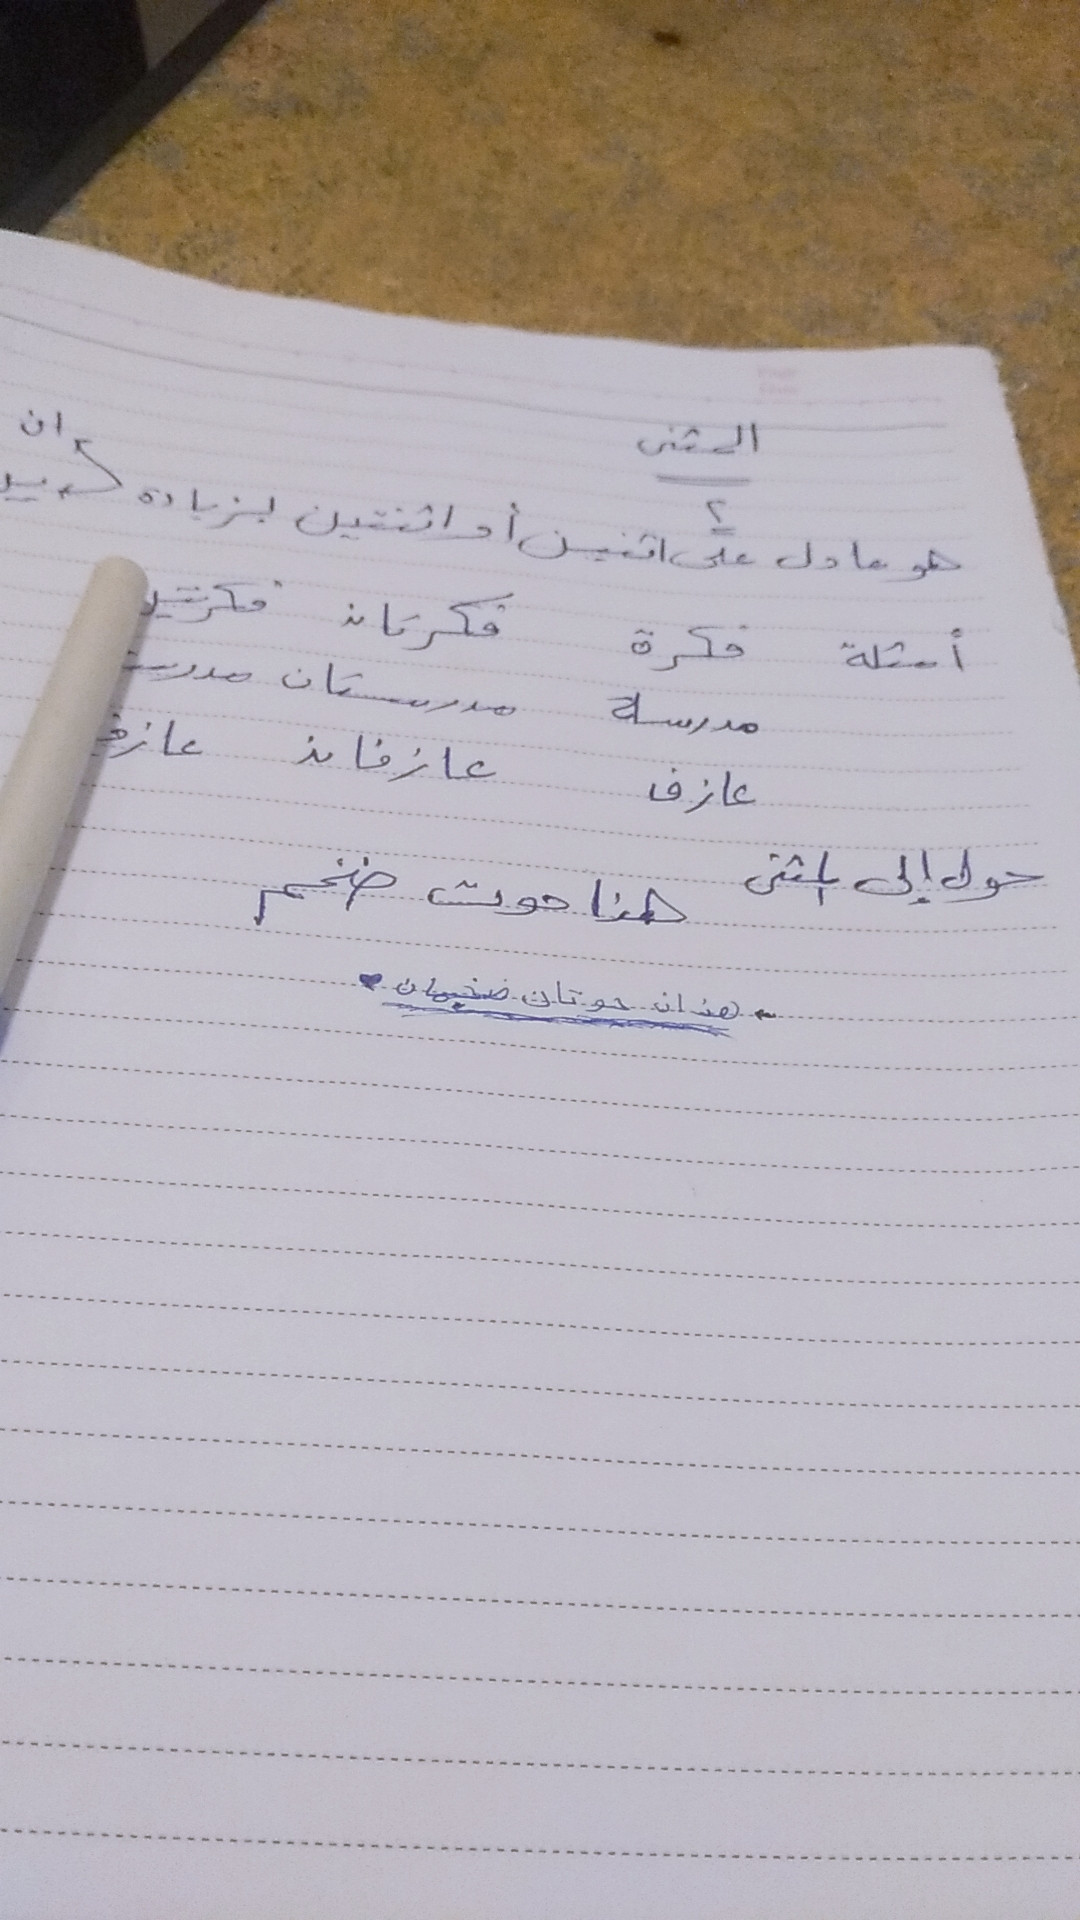 المثنى
٢
هو ما دل على اثنين أو اثنتين بزيادة ان
أمثلة فكرة فكرتان فكرتين
مدرسة مدرستان
عازف عازفان
حول إلى مثنى هذا حوت ضخم
هذان حوتان ضخمان